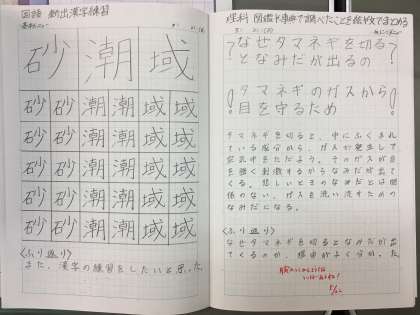 国語 新出漢字練習
砂 潮 域
砂 砂 潮 潮 域 域
砂 砂 潮 潮 域 域
砂 砂 潮 潮 域 域
砂 砂 潮 潮 域 域
砂 砂 潮 潮 域 域
〈ふり返り〉
また、漢字の練習をしたいと思った。
理科 図鑑や事典で調べたことを絵や文でまとめる
?なぜタマネギを切る
となみだが出るの?
!タマネギのガスから
目を守るため!
タマネギを切ると、中にふくまれ
ている成分から、ガスが発生して
空気中をただよう。そのガスが目
を強く刺激するからなみだが出て
くる。悲しいときのなみだとは関
係のない、ガスを洗い流すための
なみだになる。
〈ふり返り〉
なぜタマネギを切るとなみだが出
てくるのか、理由がよく分かった。